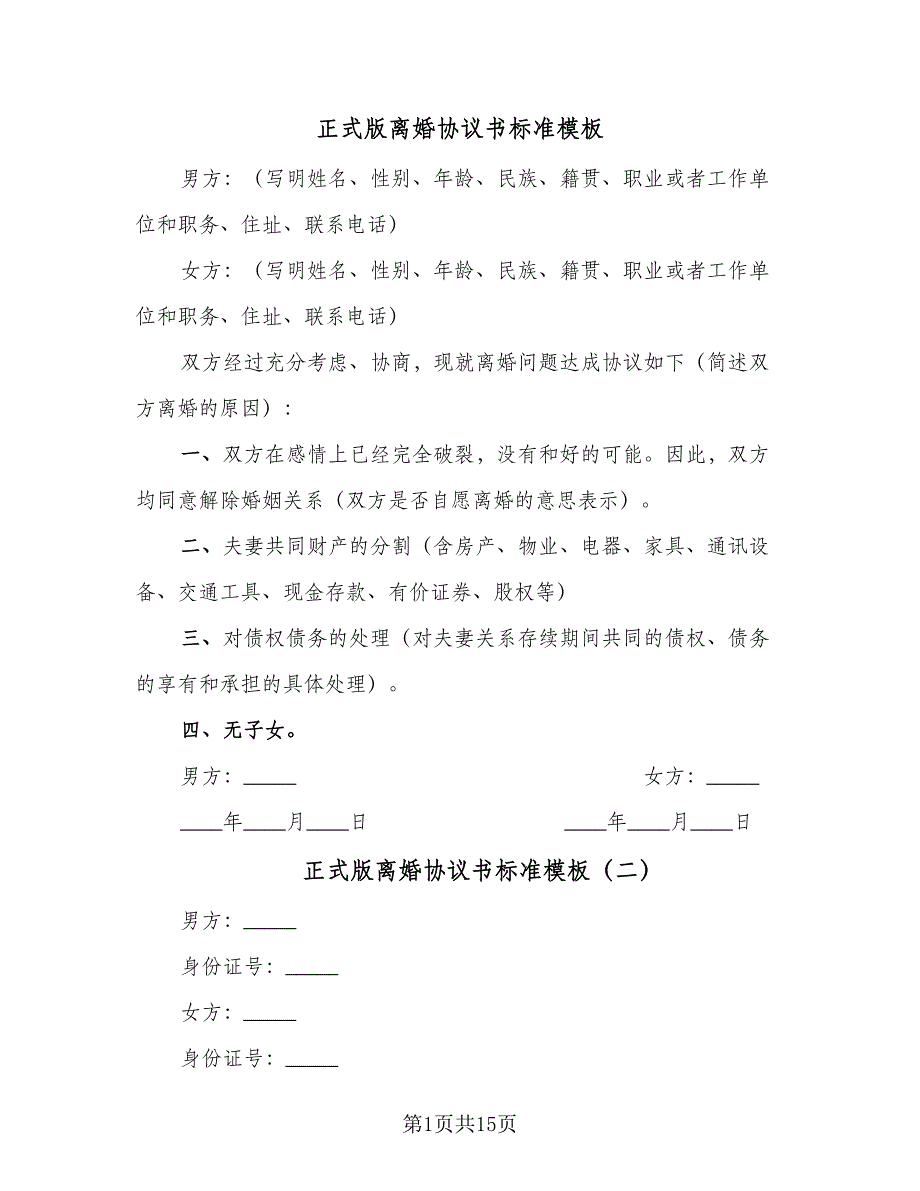 正式版离婚协议书标准模板
男方：（写明姓名、性别、年龄、民族、籍贯、职业或者工作单
位和职务、住址、联系电话）
女方：（写明姓名、性别、年龄、民族、籍贯、职业或者工作单
位和职务、住址、联系电话）
双方经过充分考虑、协商，现就离婚问题达成协议如下（简述双
方离婚的原因）：
一、双方在感情上已经完全破裂，没有和好的可能。因此，双方
均同意解除婚姻关系（双方是否自愿离婚的意思表示）。
二、夫妻共同财产的分割（含房产、物业、电器、家具、通讯设
备、交通工具、现金存款、有价证券、股权等）
三、对债权债务的处理（对夫妻关系存续期间共同的债权、债务
的享有和承担的具体处理）。
四、无子女。
男方：_____ 女方：_____
____年____月____日 ____年____月____日
正式版离婚协议书标准模板（二）
男方：_____
身份证号：_____
女方：_____
身份证号：_____
第1页共15页